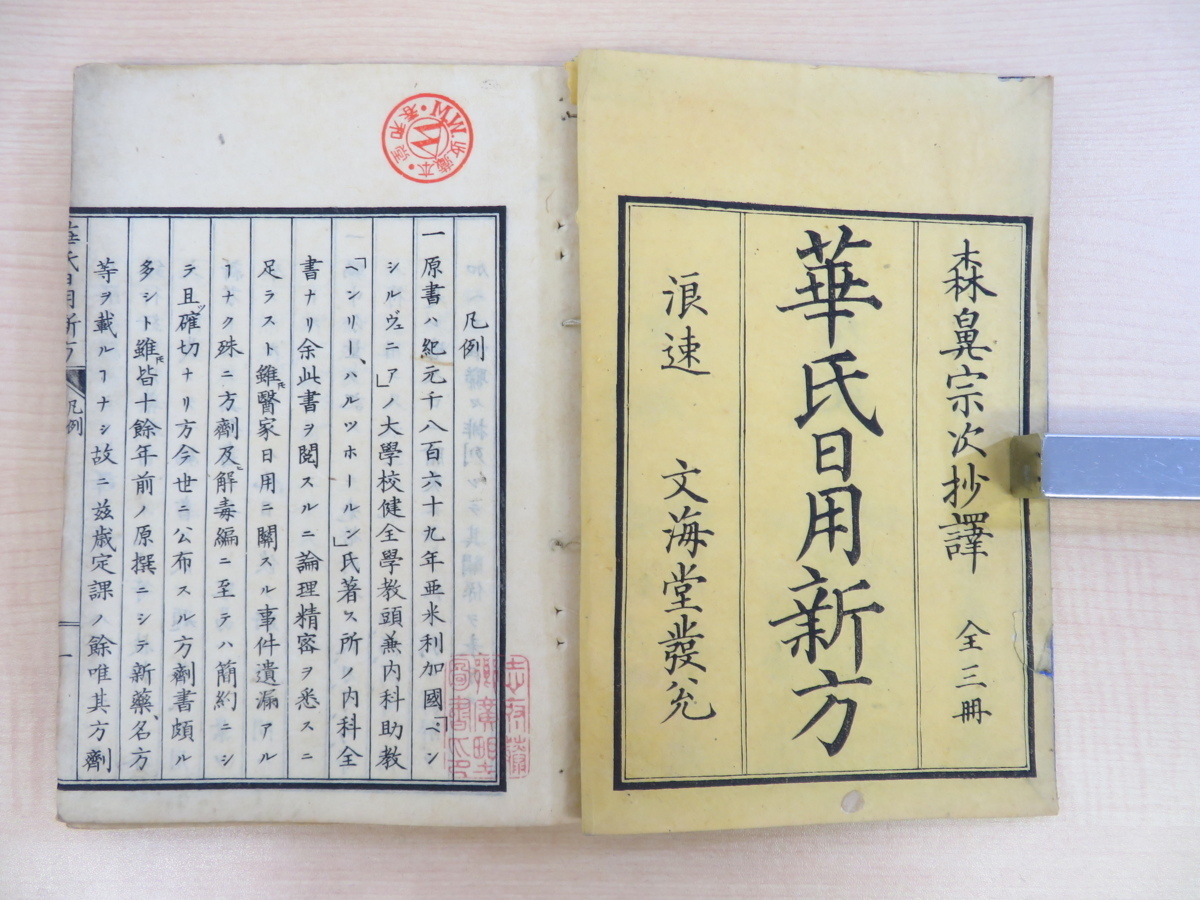 森鼻宗次抄譯 全三冊
華氏日用新方
浪速 文海堂發兌
凡例
一原書ハ紀元千八百六十九年亜米利加國「ペン
シルヴェニア」ノ大學校健全學教頭兼内科助教
「ヘンリー、ハルツホールン」氏著ス所ノ内科全
書ナリ余此書ヲ閲スルニ論理精密ヲ悉スニ
足ラスト雖𪜈醫家日用ニ關スル事件遺漏アル
ヿナク殊ニ方劑及ヒ解毒編ニ至テハ簡約ニシ
テ且ツ確切ナリ方今世ニ公布スル方劑書頗ル
多シト雖𪜈皆十餘年前ノ原撰ニシテ新藥、名方
等ヲ載ルヿナシ故ニ茲歳定課ノ餘唯其方劑
華氏日用新方 凡例 一
M.W.收藏本
春和